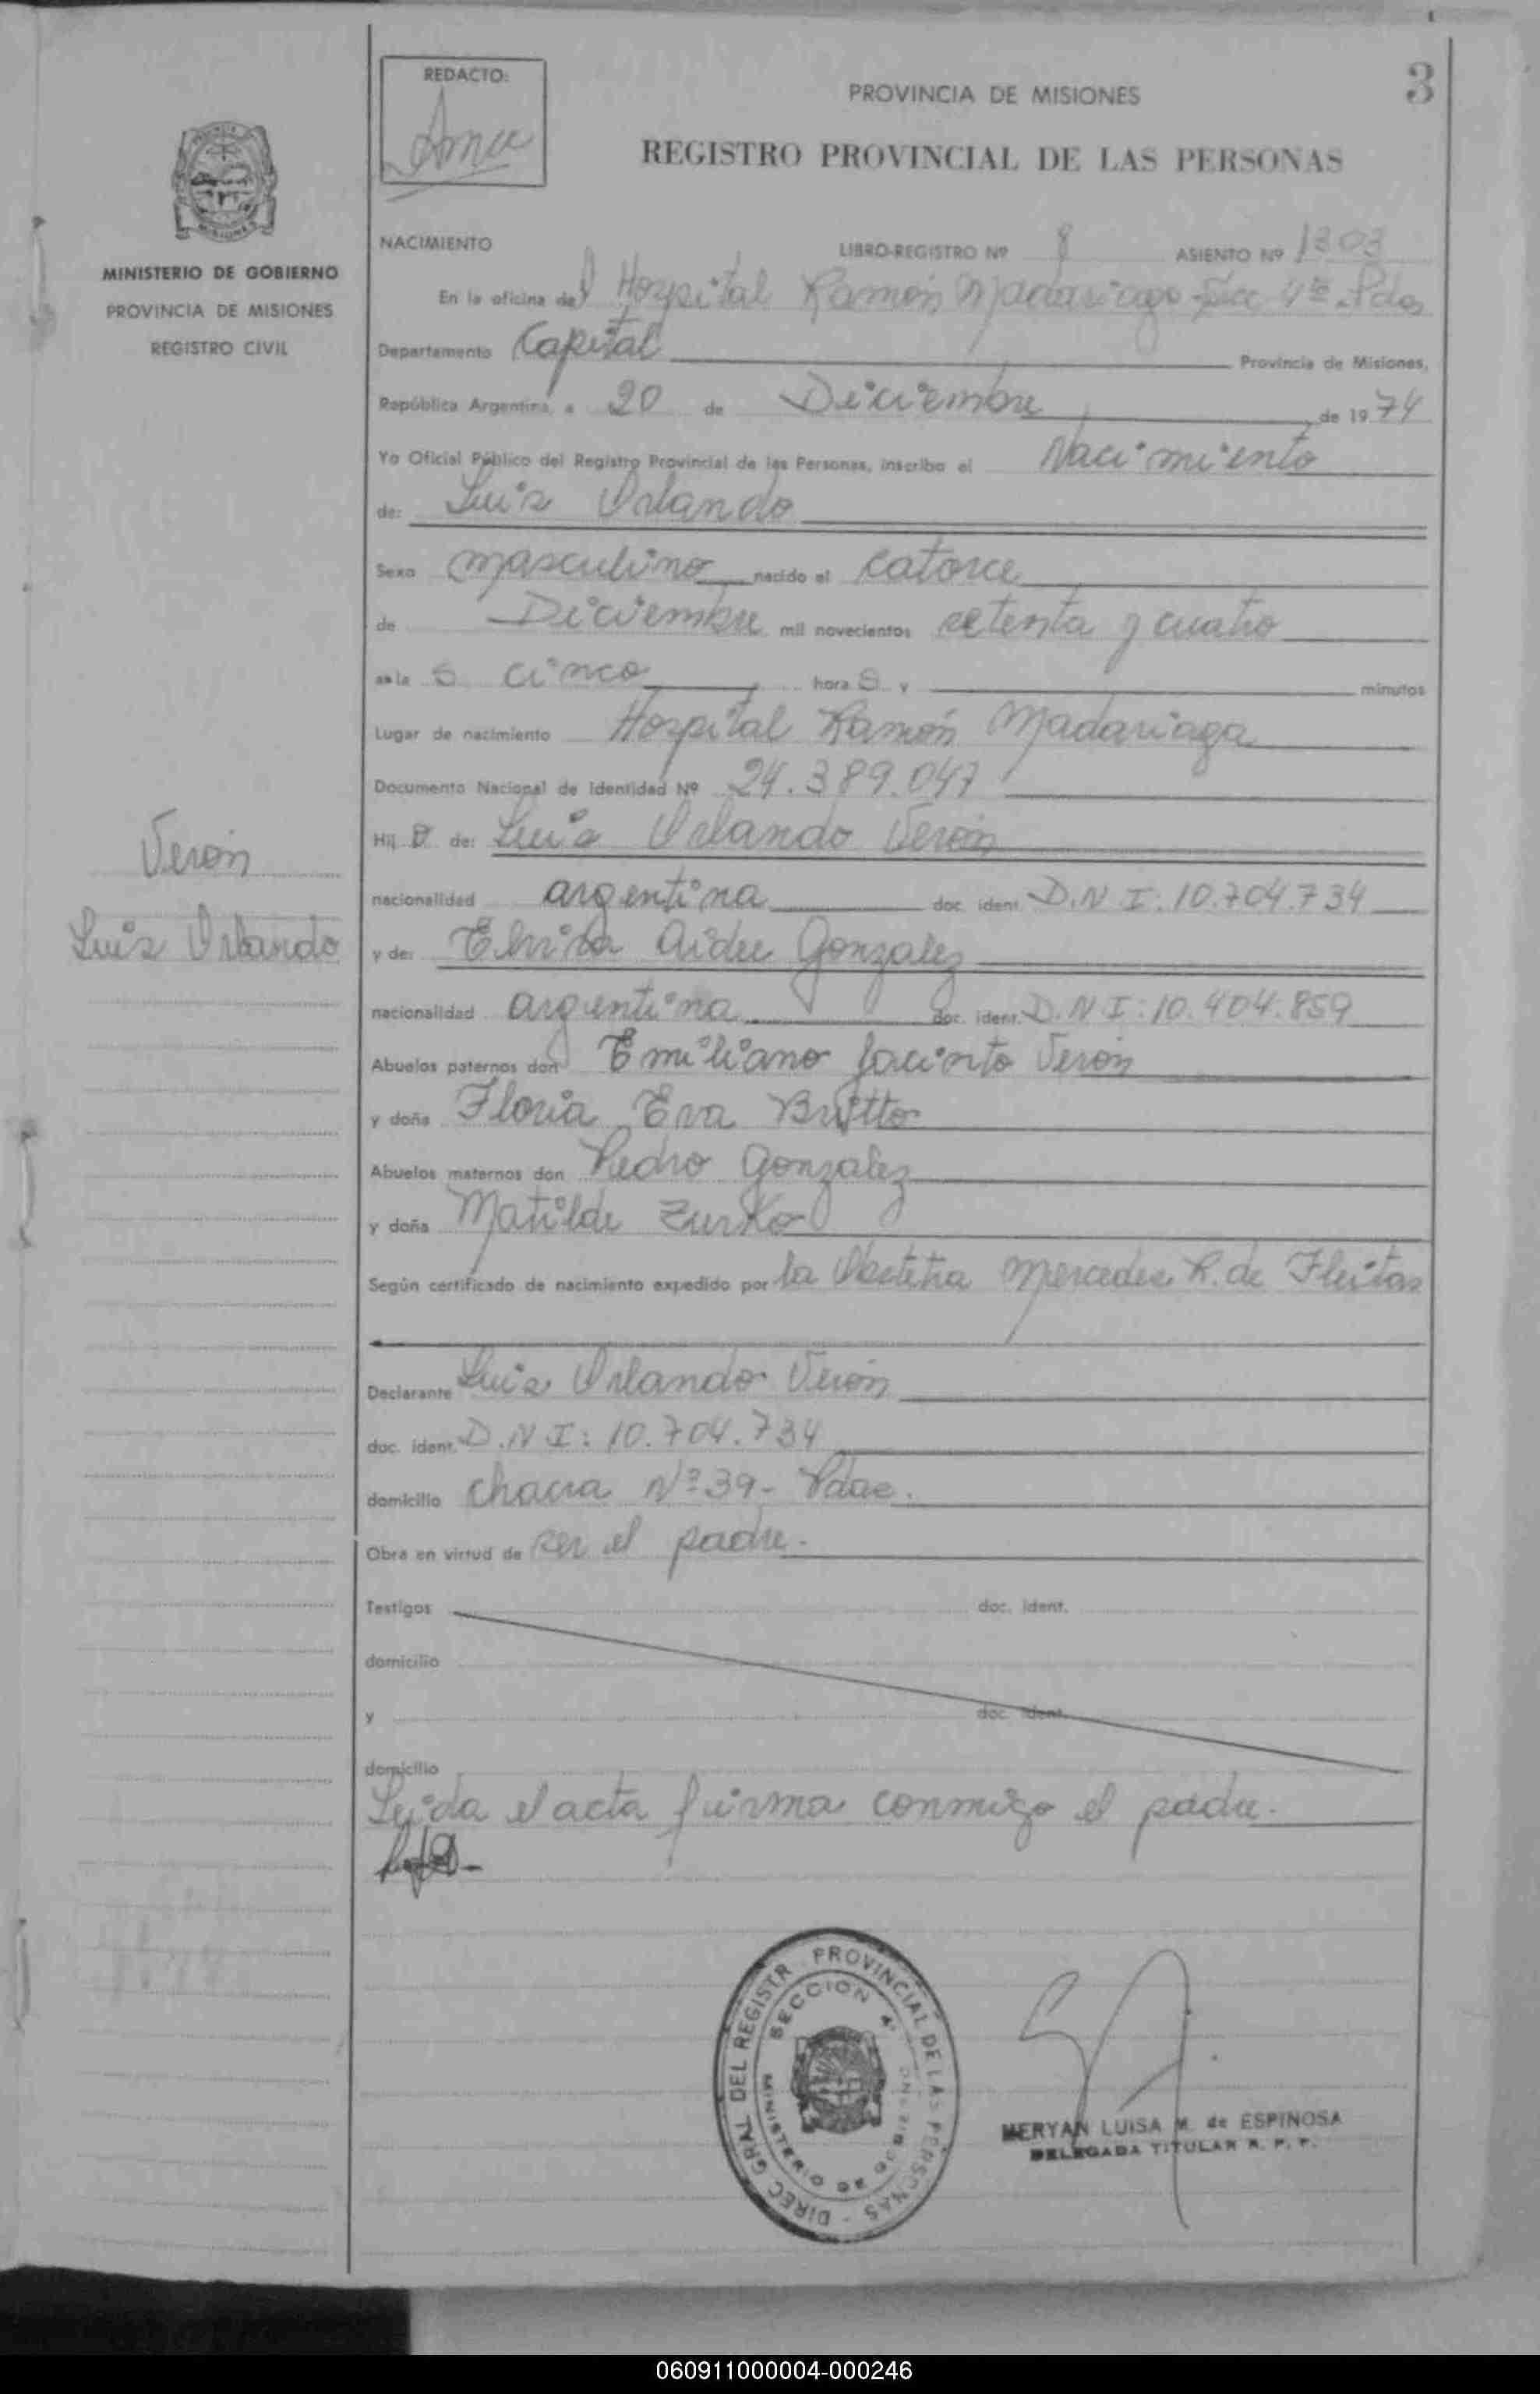 REDACTO:
PROVINCIA DE MISIONES
3
REGISTRO PROVINCIAL DE LAS PERSONAS
MINISTERIO DE GOBIERNO
PROVINCIA DE MISIONES
REGISTRO CIVIL
NACIMIENTO LIBRO-REGISTRO Nº 8 ASIENTO Nº 1303
En la oficina del Hospital Ramón Madariaga - Secc 4ta Pdas
Departamento Capital Provincia de Misiones,
República Argentina, a 20 de Diciembre de 1974
Yo Oficial Público del Registro Provincial de las Personas, inscribo el Nacimiento
de: Luis Orlando
Sexo masculino nacido el catorce
de Diciembre mil novecientos setenta y cuatro
a la s cinco hora s y minutos
Lugar de nacimiento Hospital Ramón Madariaga
Documento Nacional de Identidad Nº 24.389.047
Hij o de: Luis Orlando Verón
nacionalidad argentina doc. ident. D.N I: 10.704.734
y de: Elvira Aidee Gonzalez
nacionalidad argentina doc. ident. D.N I: 10.404.859
Abuelos paternos don Emiliano Jacinto Verón
y doña Floria Eva Britto
Abuelos maternos don Pedro Gonzalez
y doña Matilde Zurko
Según certificado de nacimiento expedido por la Obstetra Mercedes R. de Fleitas
Declarante Luis Orlando Verón
doc. ident. D.N I: 10.704.734
domicilio chacra Nº 39- Pdas.
Obra en virtud de ser el padre.
Testigos doc. ident.
domicilio
y doc. ident.
domicilio
Leida el acta firma conmigo el padre.
Verón
Luis Orlando
DIREC GRAL DEL REGISTR. PROVINCIAL DE LAS PERSONAS -
SECCION 4ª
MINISTERIO DE GOBIERNO
MERYAN LUISA M. de ESPINOSA
DELEGADA TITULAR R. P. P.
060911000004-000246